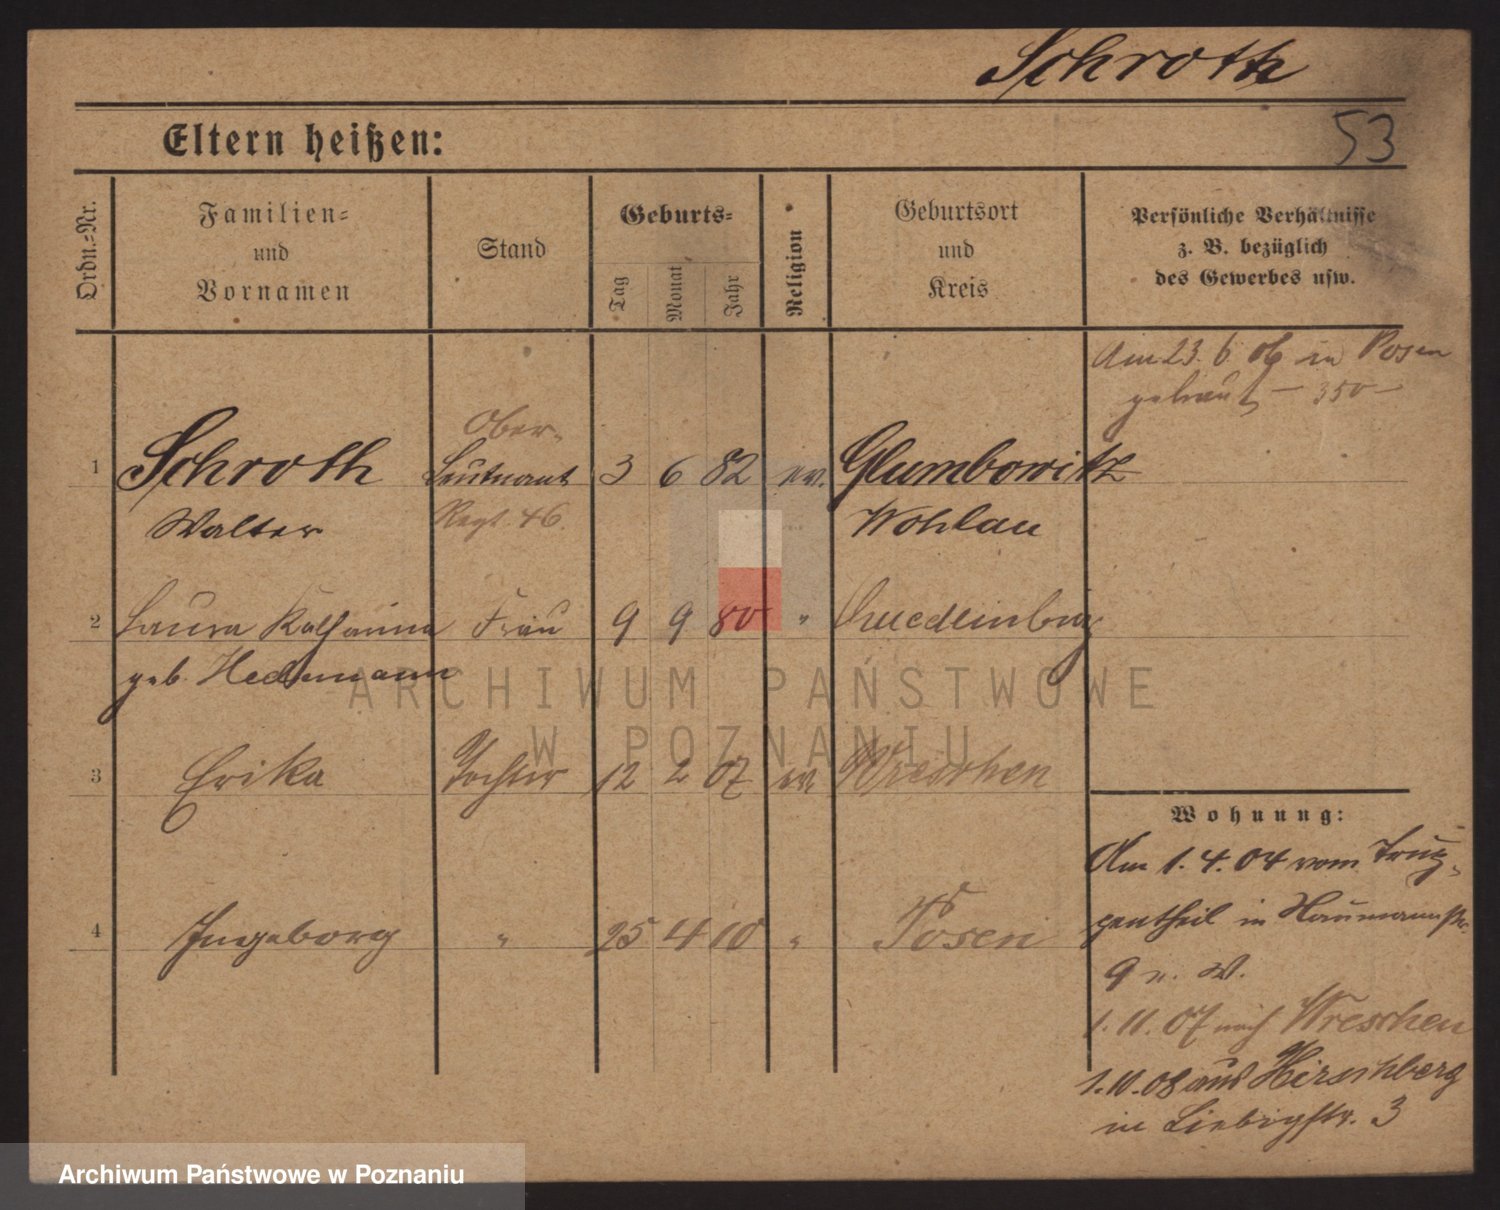 Schroth
Eltern heißen:
53
Ordn.-Nr.
Familien-
und
Vornamen
Stand
Geburts-
Tag
Monat
Jahr
Religion
Geburtsort
und
Kreis
Persönliche Verhältnisse
z. B. bezüglich
des Gewerbes usw.
Am 23. 6. 06 in Posen
getraut – 350 –
Ober-
1 Schroth Leutnant 3 6 82 ev. Glumbowitz
Walter Regt. 46. Wohlau
2 Laura Katharina Frau 9 9 80 " Quedlinburg
geb.
3 Erika Tochter 12 2 07 ev. Wreschen
Wohnung:
Am 1. 4. 04 vom
4 Ingeborg " 25 4 10 " Posen
in Naumannstr.
9 n. W.
1. 11. 07 nach Wreschen
1. 10. 08 aus Hirschberg
in Liebigstr. 3
ARCHIWUM PAŃSTWOWE
W POZNANIU
Archiwum Państwowe w Poznaniu